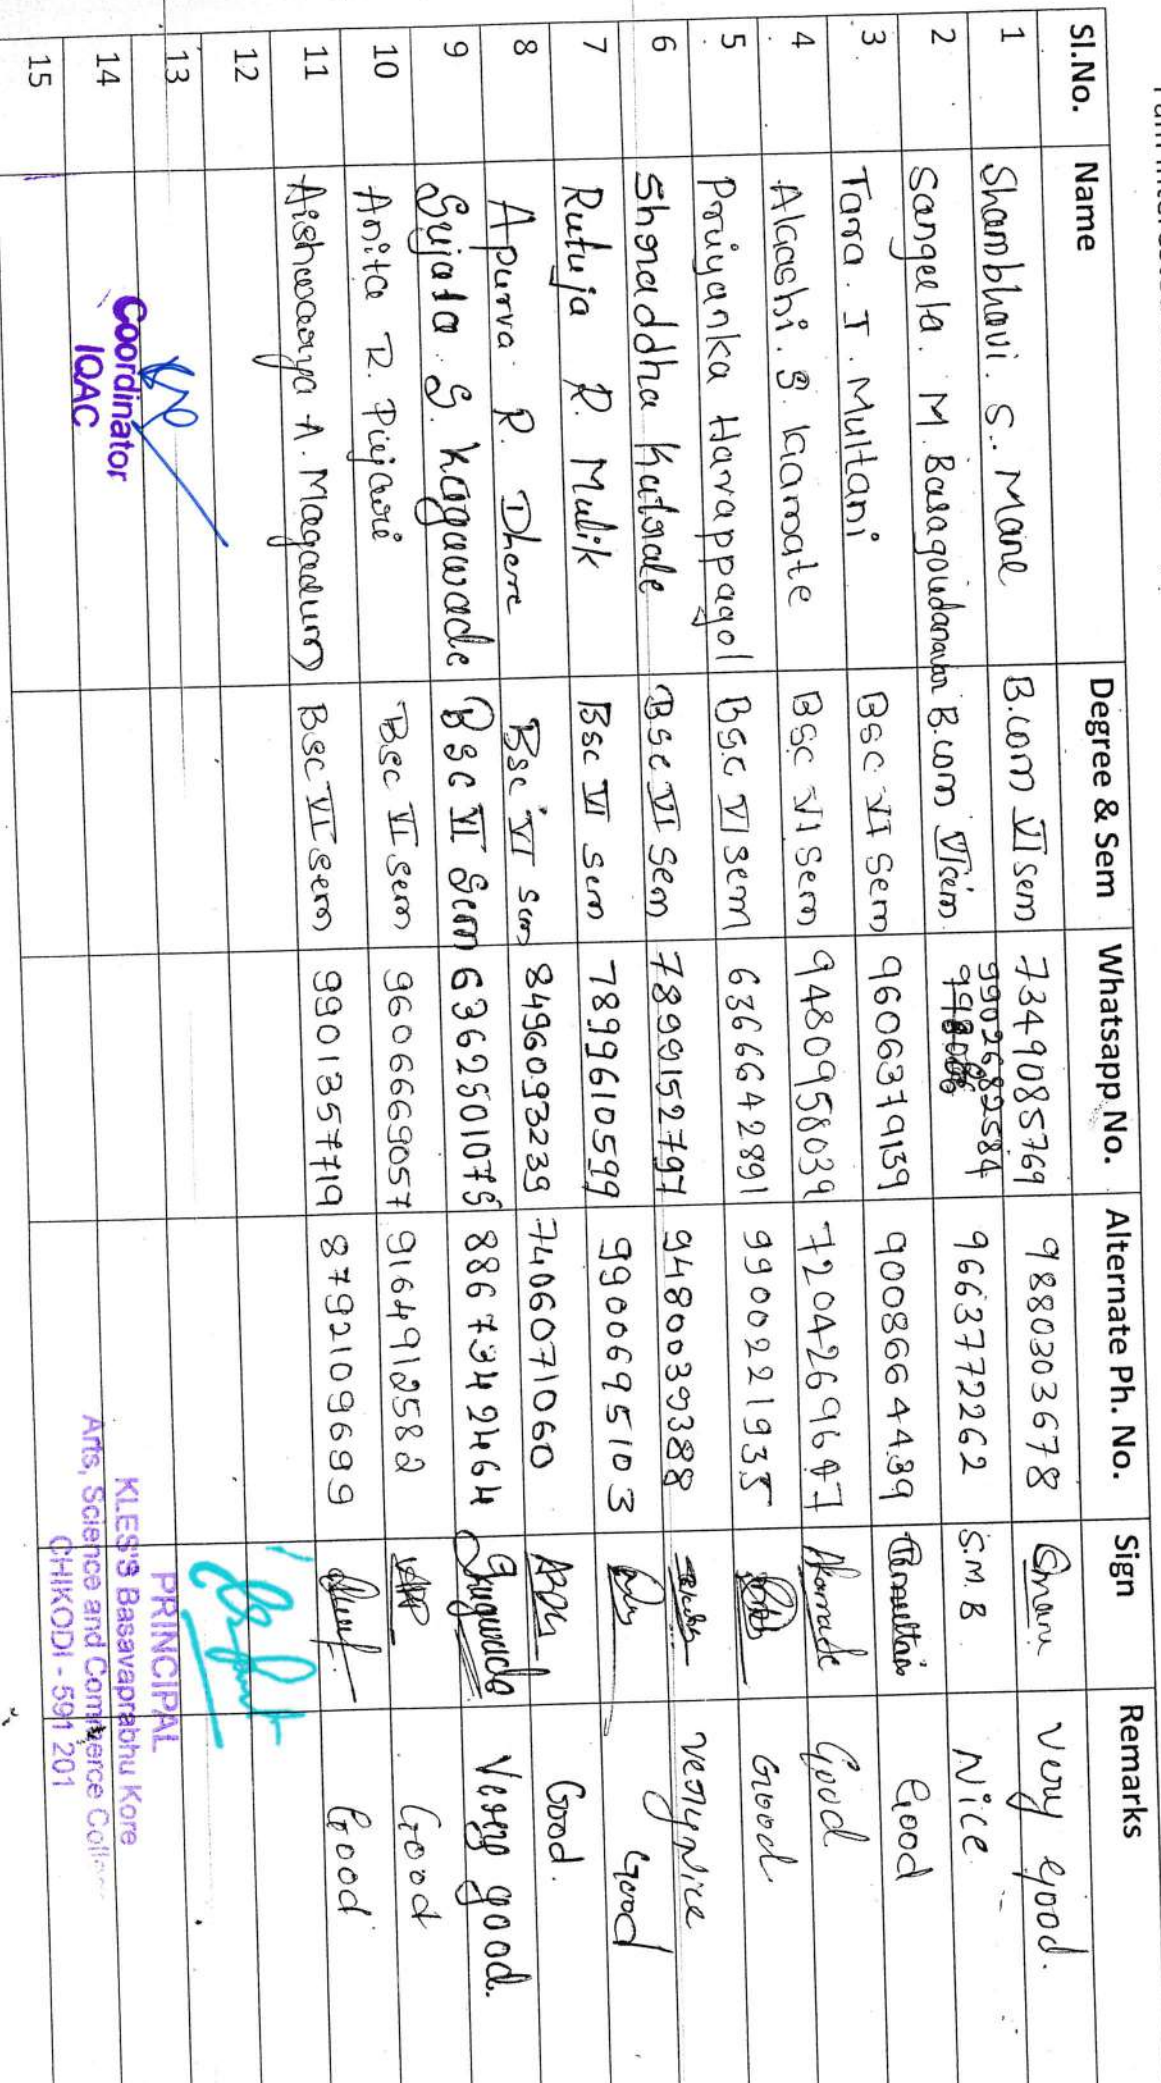 Sl.No. Name Degree & Sem Whatsapp No. Alternate Ph. No. Sign Remarks
1 Shambhavi. S. Mane B.com VI sem 7349085769 9880303678 Smane Very good.
2 Sangeeta. M. Basagoudanavar B.com VI sem 9902682584 9663772262 S.M.B Nice
3 Tara. I. Multani BSC VI Sem 9606379139 9008664439 Good
4 BSC VI Sem 9480958039 Good
5 Priyanka Harvappagol BSC VI sem 6366642891 9900221935 Good
6 Shraddha Katrale BSC VI Sem 7899152797 9480039388 very Nice
7 Rutuja R. Mulik Bsc VI sem 7899610599 9900695103 Good
8 Apurva. R. Dhere Bsc VI sem 8496093239 7406071060 Good.
9 Sujata. S. Kagawade BSC VI Sem 6362501075 8867342464 Very good.
10 Anita R. Pujari BSC VI Sem 9606669057 9164912582 Good
11 Aishwarya A. Magadum BSC VI sem 9901357719 8792109699 Good
12
13
14
15
Coordinator
IQAC
PRINCIPAL
KLES'S Basavaprabhu Kore
Arts, Science and Commerce
CHIKODI - 591 201